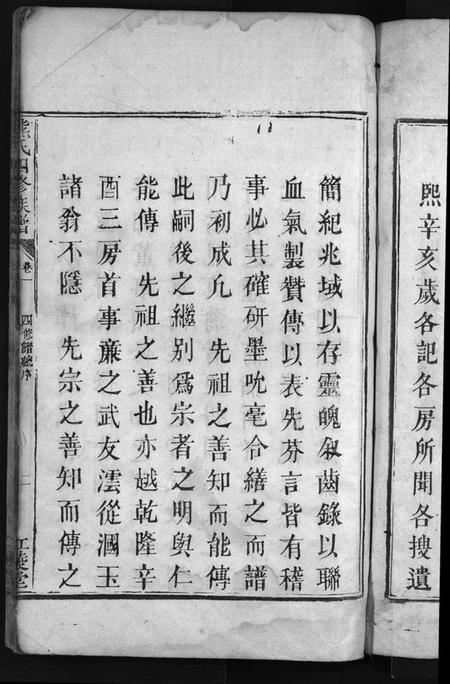 熙辛亥歲各記各房所聞各搜遺
簡紀兆域以存靈魄叙齒錄以聯
血氣製贊傳以表先芬言皆有稽
事必其確研墨吮毫合繕之而譜
乃初成凢　先祖之善知而能傳
此嗣後之繼别爲宗者之明與仁
能傳　先祖之善也亦越乾隆辛
酉三房首事亷之武友澐從漍玉
諸翁不隱　先宗之善知而傳之
熊氏四修族譜
卷一
四修譜總序